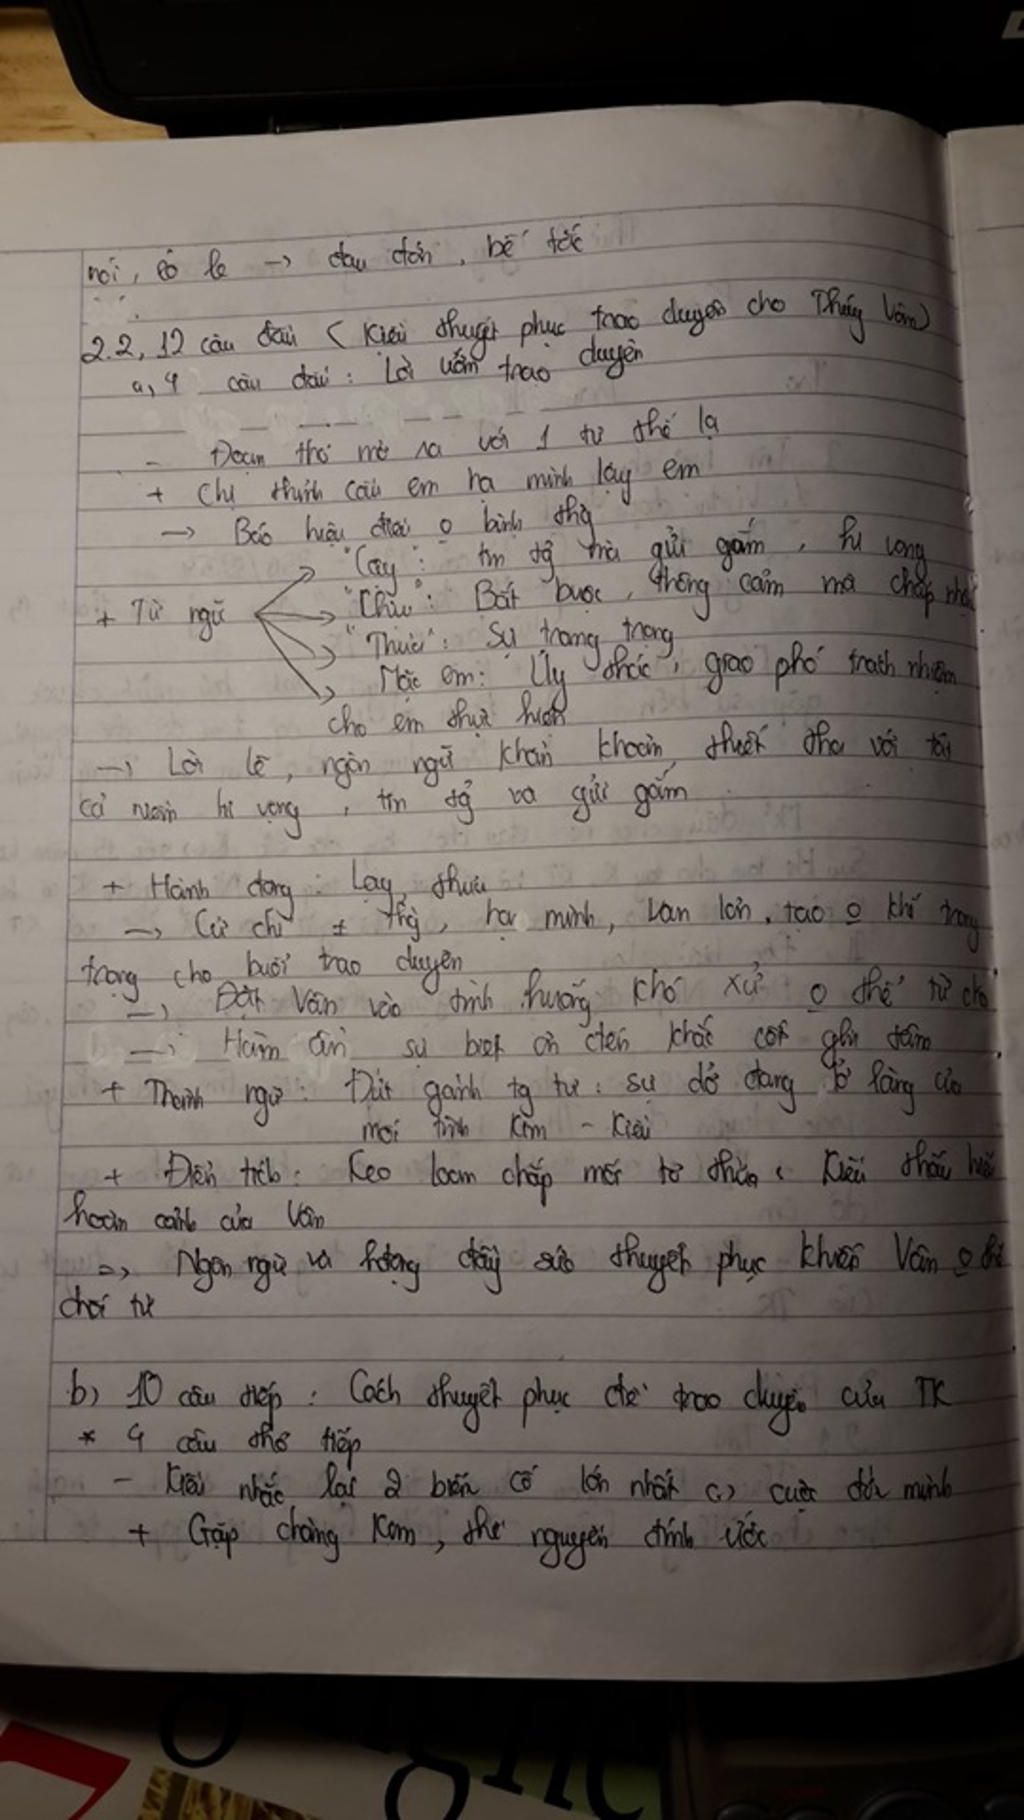 nối, éo le → đau đớn, bế tắc
2.2, 12 câu đầu (Kiều thuyết phục trao duyên cho Thúy Vân)
a, 4 câu đầu: Lời ướm trao duyên
- Đoạn thơ mở ra với 1 tư thế lạ
+ Chị thỉnh cầu em hạ mình lạy em
→ Báo hiệu điều o bình thg
"Cậy": tin tg mà gửi gắm, hi vọng
+ Từ ngữ "Chịu": Bắt buộc, thông cảm mà chấp nhận
"Thưa": Sự trang trọng
Mặc em: Ủy thác, giao phó trách nhiệm
cho em thực hiện
→ Lời lẽ, ngôn ngữ khẩn khoản thiết tha với tất
cả niềm hi vọng, tin tg và gửi gắm
+ Hành động: Lạy, thưa
→ Cử chỉ ± thg, hạ mình, van lơn, tạo o khí trang
trọng cho buổi trao duyên
→ Đặt Vân vào tình huống khó xử o thể từ chối
→ Hàm ẩn sự biết ơn đến khắc cốt ghi tâm
+ Thành ngữ: Đứt gánh tg tư: sự dở dang lỡ làng của
mối tình Kim - Kiều
+ Điển tích: Keo loan chắp mối tơ thừa: Kiều thấu hiểu
hoàn cảnh của Vân
=> Ngôn ngữ và hđộng đầy sức thuyết phục khiến Vân o thể
chối từ
b) 10 câu tiếp: Cách thuyết phục để trao duyên của TK
* 4 câu thơ tiếp
- Kiều nhắc lại 2 biến cố lớn nhất cuộc đời mình
+ Gặp chàng Kim, thề nguyền đính ước